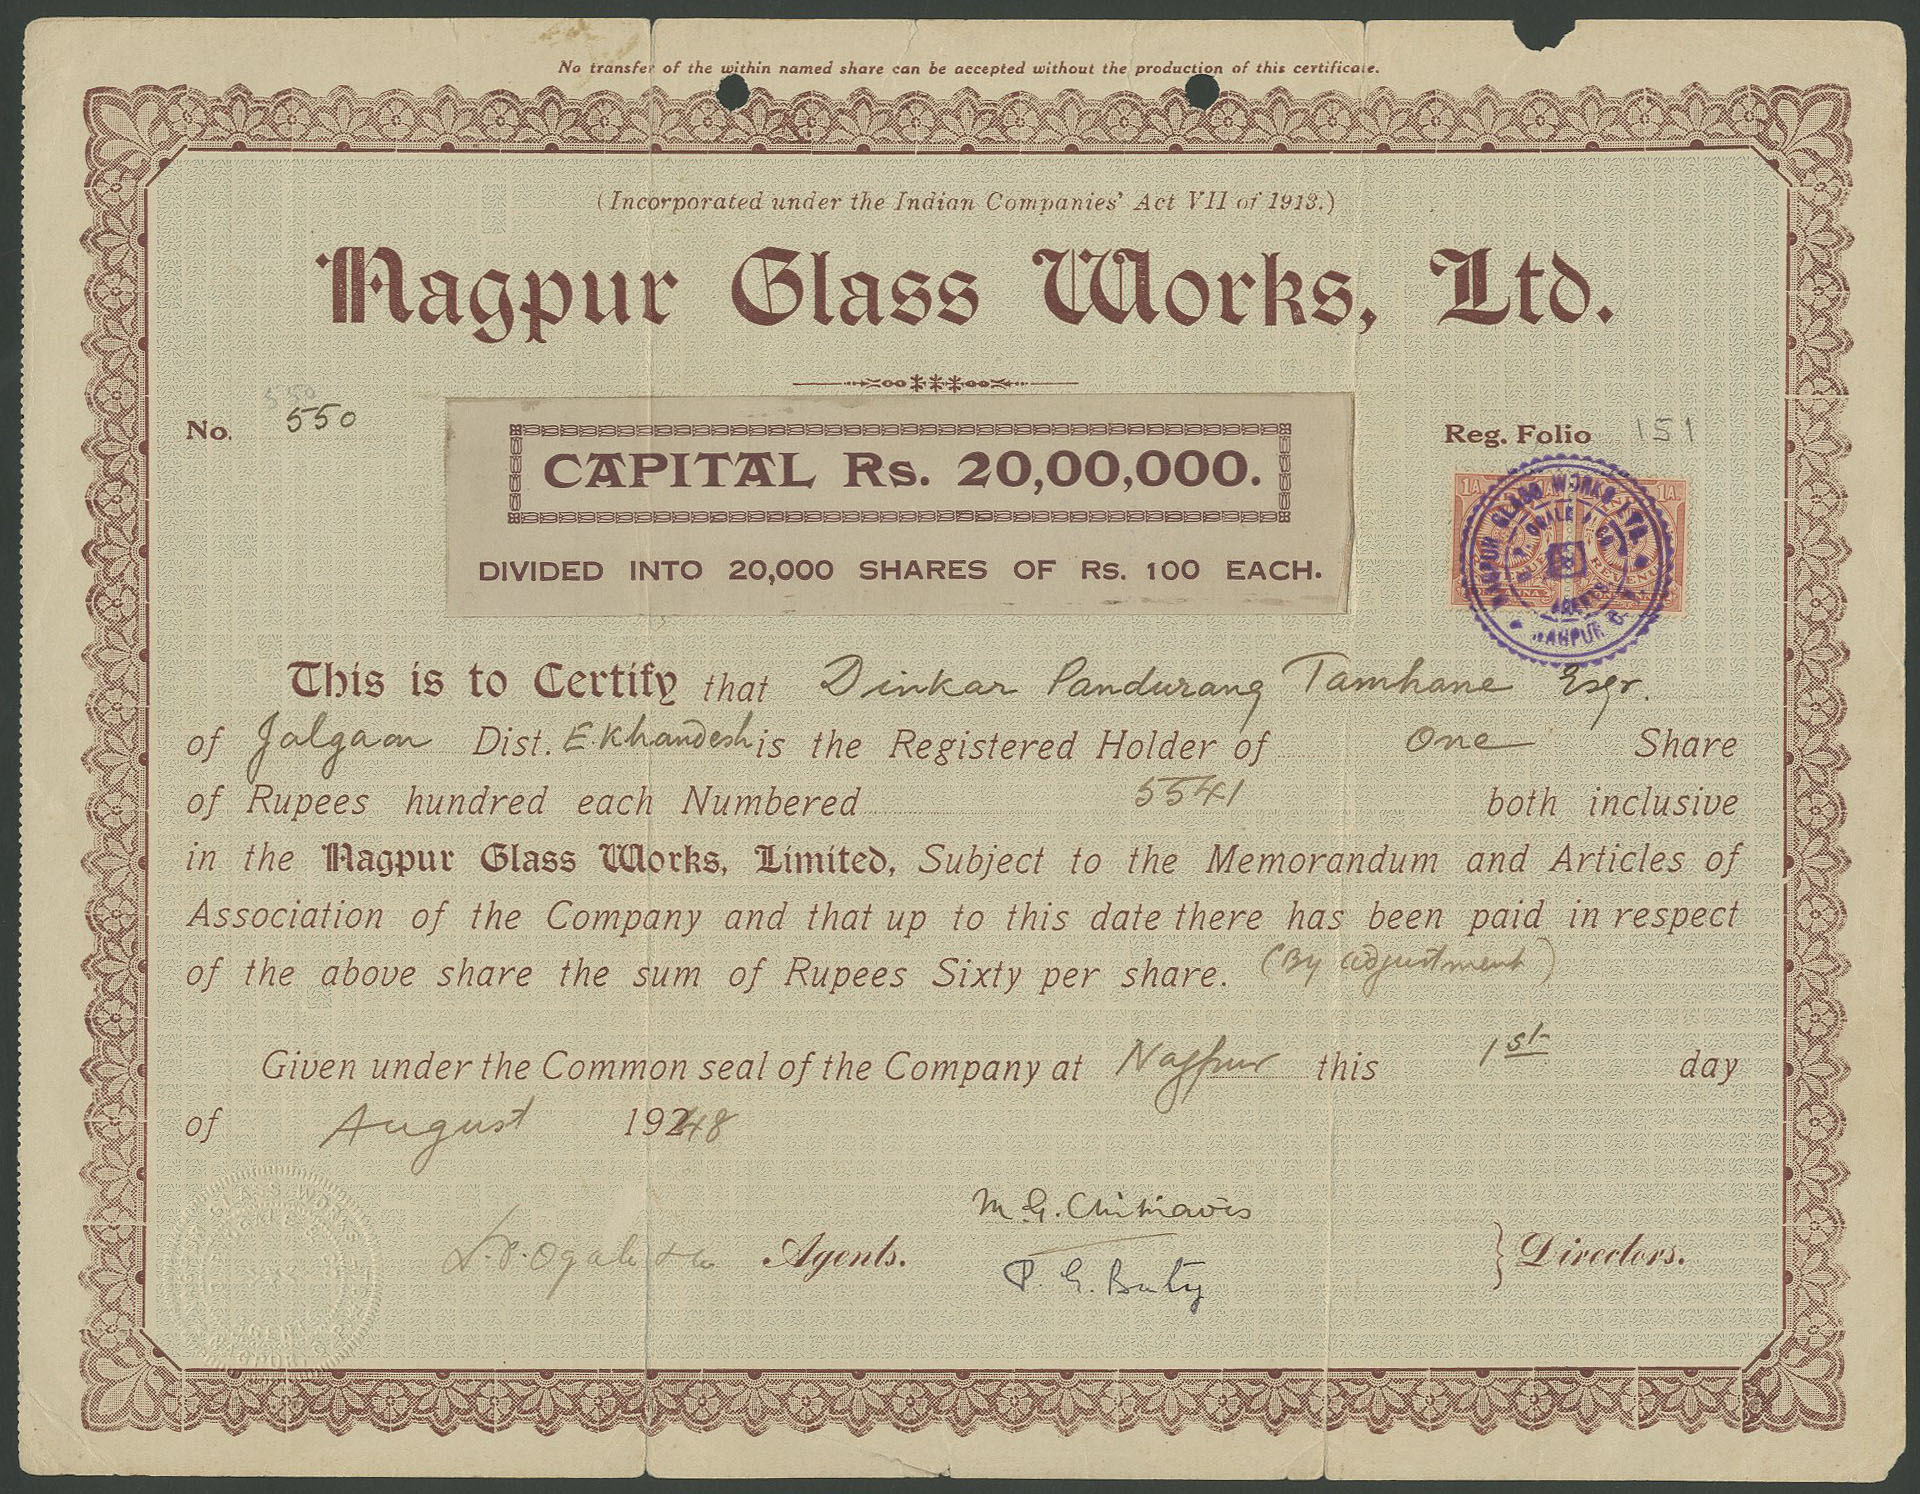 No transfer of the within named share can be accepted without the production of this certificate.
(Incorporated under the Indian Companies' Act VII of 1913.)
Nagpur Glass Works, Ltd.
550
No. 550
Reg. Folio 151
CAPITAL Rs. 20,00,000.
DIVIDED INTO 20,000 SHARES OF Rs. 100 EACH.
1A. 1A.
NAGPUR GLASS WORKS LTD.
REVENUE
AGENTS
NAGPUR
This is to Certify that Dinkar Pandurang Tamhane Esqr.
of Jalgaon Dist. E. Khandesh is the Registered Holder of One Share
of Rupees hundred each Numbered 5541 both inclusive
in the Nagpur Glass Works, Limited, Subject to the Memorandum and Articles of
Association of the Company and that up to this date there has been paid in respect
of the above share the sum of Rupees Sixty per share. (By adjustment)
Given under the Common seal of the Company at Nagpur this 1st day
of August 19248
GLASS WORKS
AGENTS
NAGPUR, C.P.
M. G. Chitnavis
Ogale & Co Agents.
P. G. Buty
Directors.